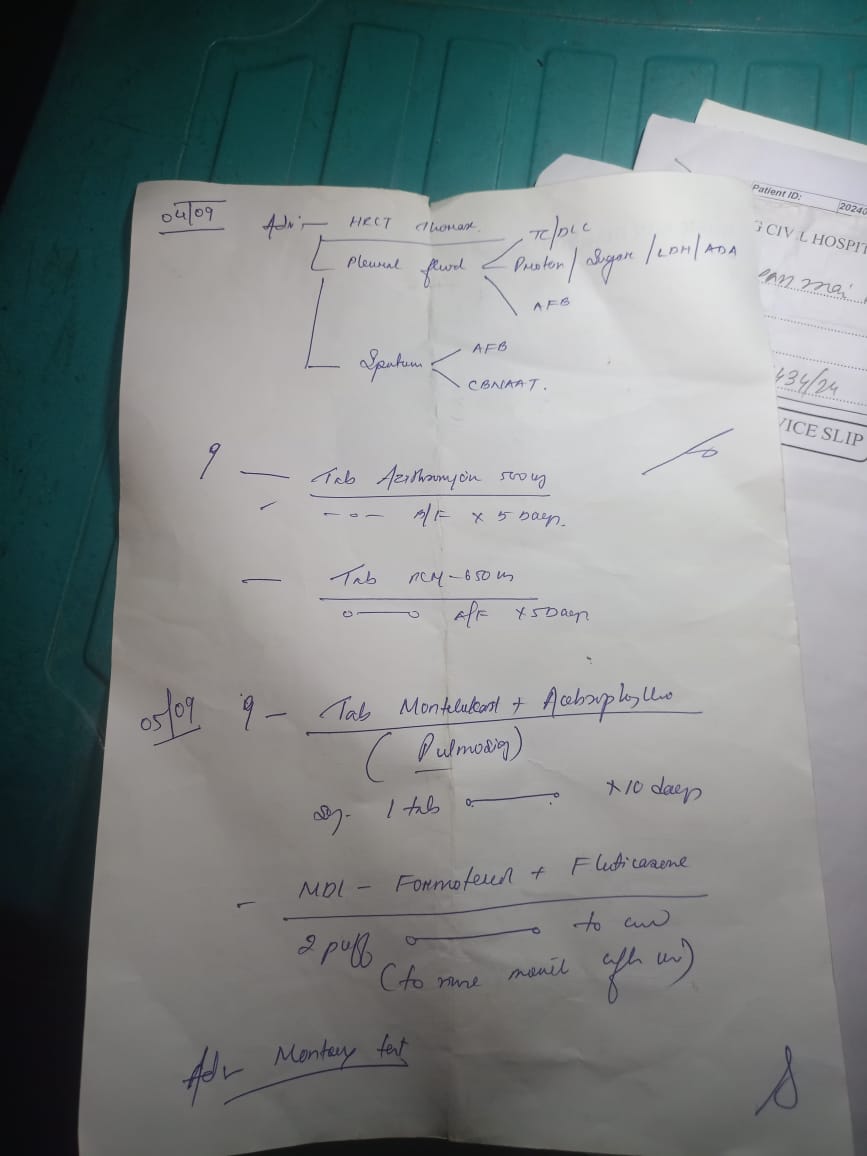 04/09
Adv:- HRCT Thorax.
Pleural fluid TC/DLC
Protein / Sugar / LDH / ADA
AFB
Sputum AFB
CBNAAT.
Tab Azithromycin 500 mg
B/F x 5 Days.
Tab PCM-650 m
A/F x 5 Days
05/09
Tab Montelukast + Acebrophyllin
(Pulmodig)
1 tab x 10 days
MDI - Formoterol + Fluticasone
2 puff to cont
(to rinse mouth after use)
Adv Montoux test
Patient ID: 2024
CIVIL HOSPIT
434/24
VICE SLIP